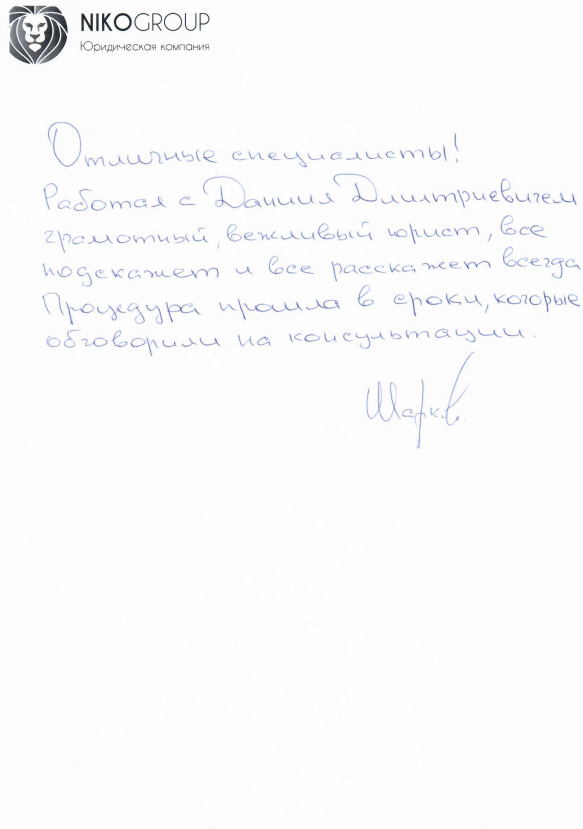 NIKOGROUP
Юридическая компания
Отличные специалисты!
Работал с Даниил Дмитриевичем
грамотный, вежливый юрист, все
подскажет и все расскажет всегда
Процедура прошла в сроки, которые
обговорили на консультации.
Шарков